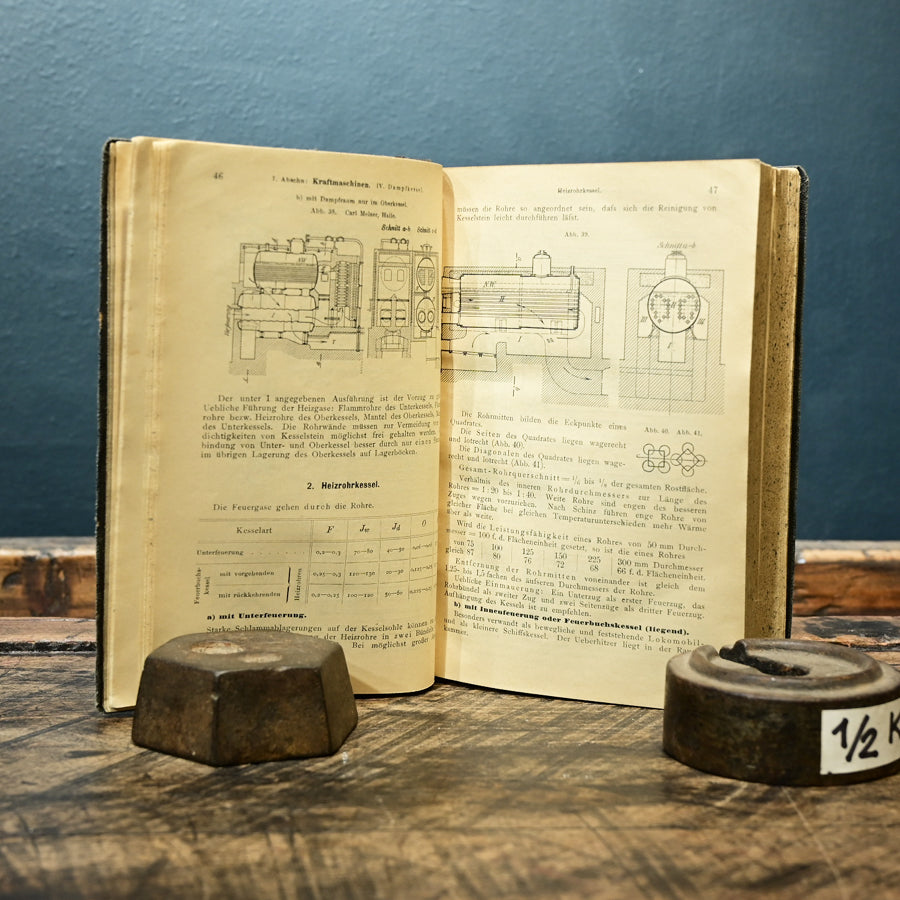 46
7. Abschn: Kraftmaschinen. IV. Dampfkessel.
b) mit Dampfraum nur im Oberkessel.
Abb. 38. Carl Meiner, Halle.
Schnitt a-b Schnitt c-d
NW
I
Der unter I angegebenen Ausführung ist der Vorzug zu
Uebliche Führung der Heizgase: Flammrohre des Unterkessels,
rohre bezw. Heizrohre des Oberkessels, Mantel des Oberkessels,
des Unterkessels. Die Rohrwände müssen zur Vermeidung
dichtigkeiten von Kesselstein möglichst frei gehalten werden.
bindung von Unter- und Oberkessel besser durch nur einen
im übrigen Lagerung des Oberkessels auf Lagerböcken.
2. Heizrohrkessel.
Die Feuergase gehen durch die Rohre.
Kesselart F Jw Jd O
Unterfeuerung 0,2—0,3 70—80 40—50
Feuerbuchskessel mit vorgehenden Heizrohren 0,25—0,3 120—130 20—30
mit rückkehrenden 0,2—0,25 100—120 50—60
a) mit Unterfeuerung.
Starke Schlammablagerungen auf der Kesselsohle können
der Heizrohre in zwei Bündel
Bei möglichst großer
Heizrohrkessel. 47
müssen die Rohre so angeordnet sein, dafs sich die Reinigung von
Kesselstein leicht durchführen läfst.
Abb. 39.
Schnitt a-b
NW
II
I
III III
I
Die Rohrmitten bilden die Eckpunkte eines
Quadrates.
Abb. 40. Abb. 41.
Die Seiten des Quadrates liegen wagerecht
und lotrecht (Abb. 40).
Die Diagonalen des Quadrates liegen wage-
recht und lotrecht (Abb. 41).
Gesamt-Rohrquerschnitt = der gesamten Rostfläche.
Verhältnis des inneren Rohrdurchmessers zur Länge des
Rohres = 1:20 bis 1:40. Weite Rohre sind engen des besseren
Zuges wegen vorzuziehen. Nach Schinz führen enge Rohre von
gleicher Fläche bei gleichen Temperaturunterschieden mehr Wärme
über als weite.
Wird die Leistungsfähigkeit eines Rohres von 50 mm Durch-
messer = 100 f. d. Flächeneinheit gesetzt, so ist die eines Rohres
von 75 100 125 150 225 300 mm Durchmesser
gleich 87 80 76 72 68 66 f. d. Flächeneinheit.
Entfernung der Rohrmitten voneinander ist gleich dem
1,25- bis 1,5 fachen des äufseren Durchmessers der Rohre.
Uebliche Einmauerung: Ein Unterzug als erster Feuerzug, das
Rohrbündel als zweiter Zug und zwei Seitenzüge als dritter Feuerzug.
Aufhängung des Kessels ist zu empfehlen.
b) mit Innenfeuerung oder Feuerbuchskessel (liegend).
Besonders verwandt als bewegliche und feststehende Lokomobil-
und als kleinere Schiffskessel. Der Ueberhitzer liegt in der
kammer.
1/2 K